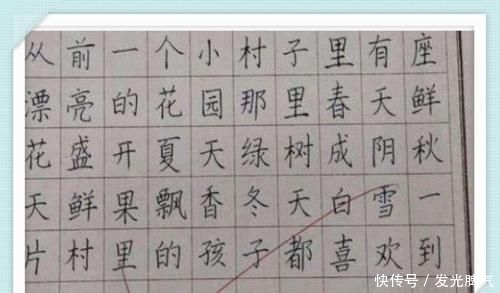 从前一个小村子里有座
漂亮的花园那里春天鲜
花盛开夏天绿树成阴秋
天鲜果飘香冬天白雪一
片村里的孩子都喜欢到
快传号 / 发光脚气